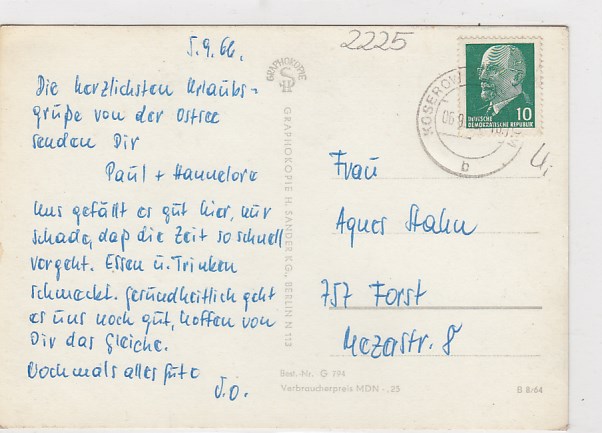 5.9.66.
Die herzlichsten Urlaubs-
grüße von der Ostsee
senden Dir
Paul + Hannelore
Uns gefällt es gut hier, nur
schade, daß die Zeit so schnell
vergeht. Essen u. Trinken
schmeckt. Gesundheitlich geht
es uns noch gut, hoffen von
Dir das Gleiche.
Nochmals alles Gute
D.O.
GRAPHOKOPIE
GRAPHOKOPIE H. SANDER KG., BERLIN N 113
Best.-Nr. G 794
Verbraucherpreis MDN -,25
2225
KOSEROW
06.9.
b
10
DEUTSCHE
DEMOKRATISCHE REPUBLIK
Frau
Agnes Stahn
757 Forst
Mozartstr. 8
B 8/64